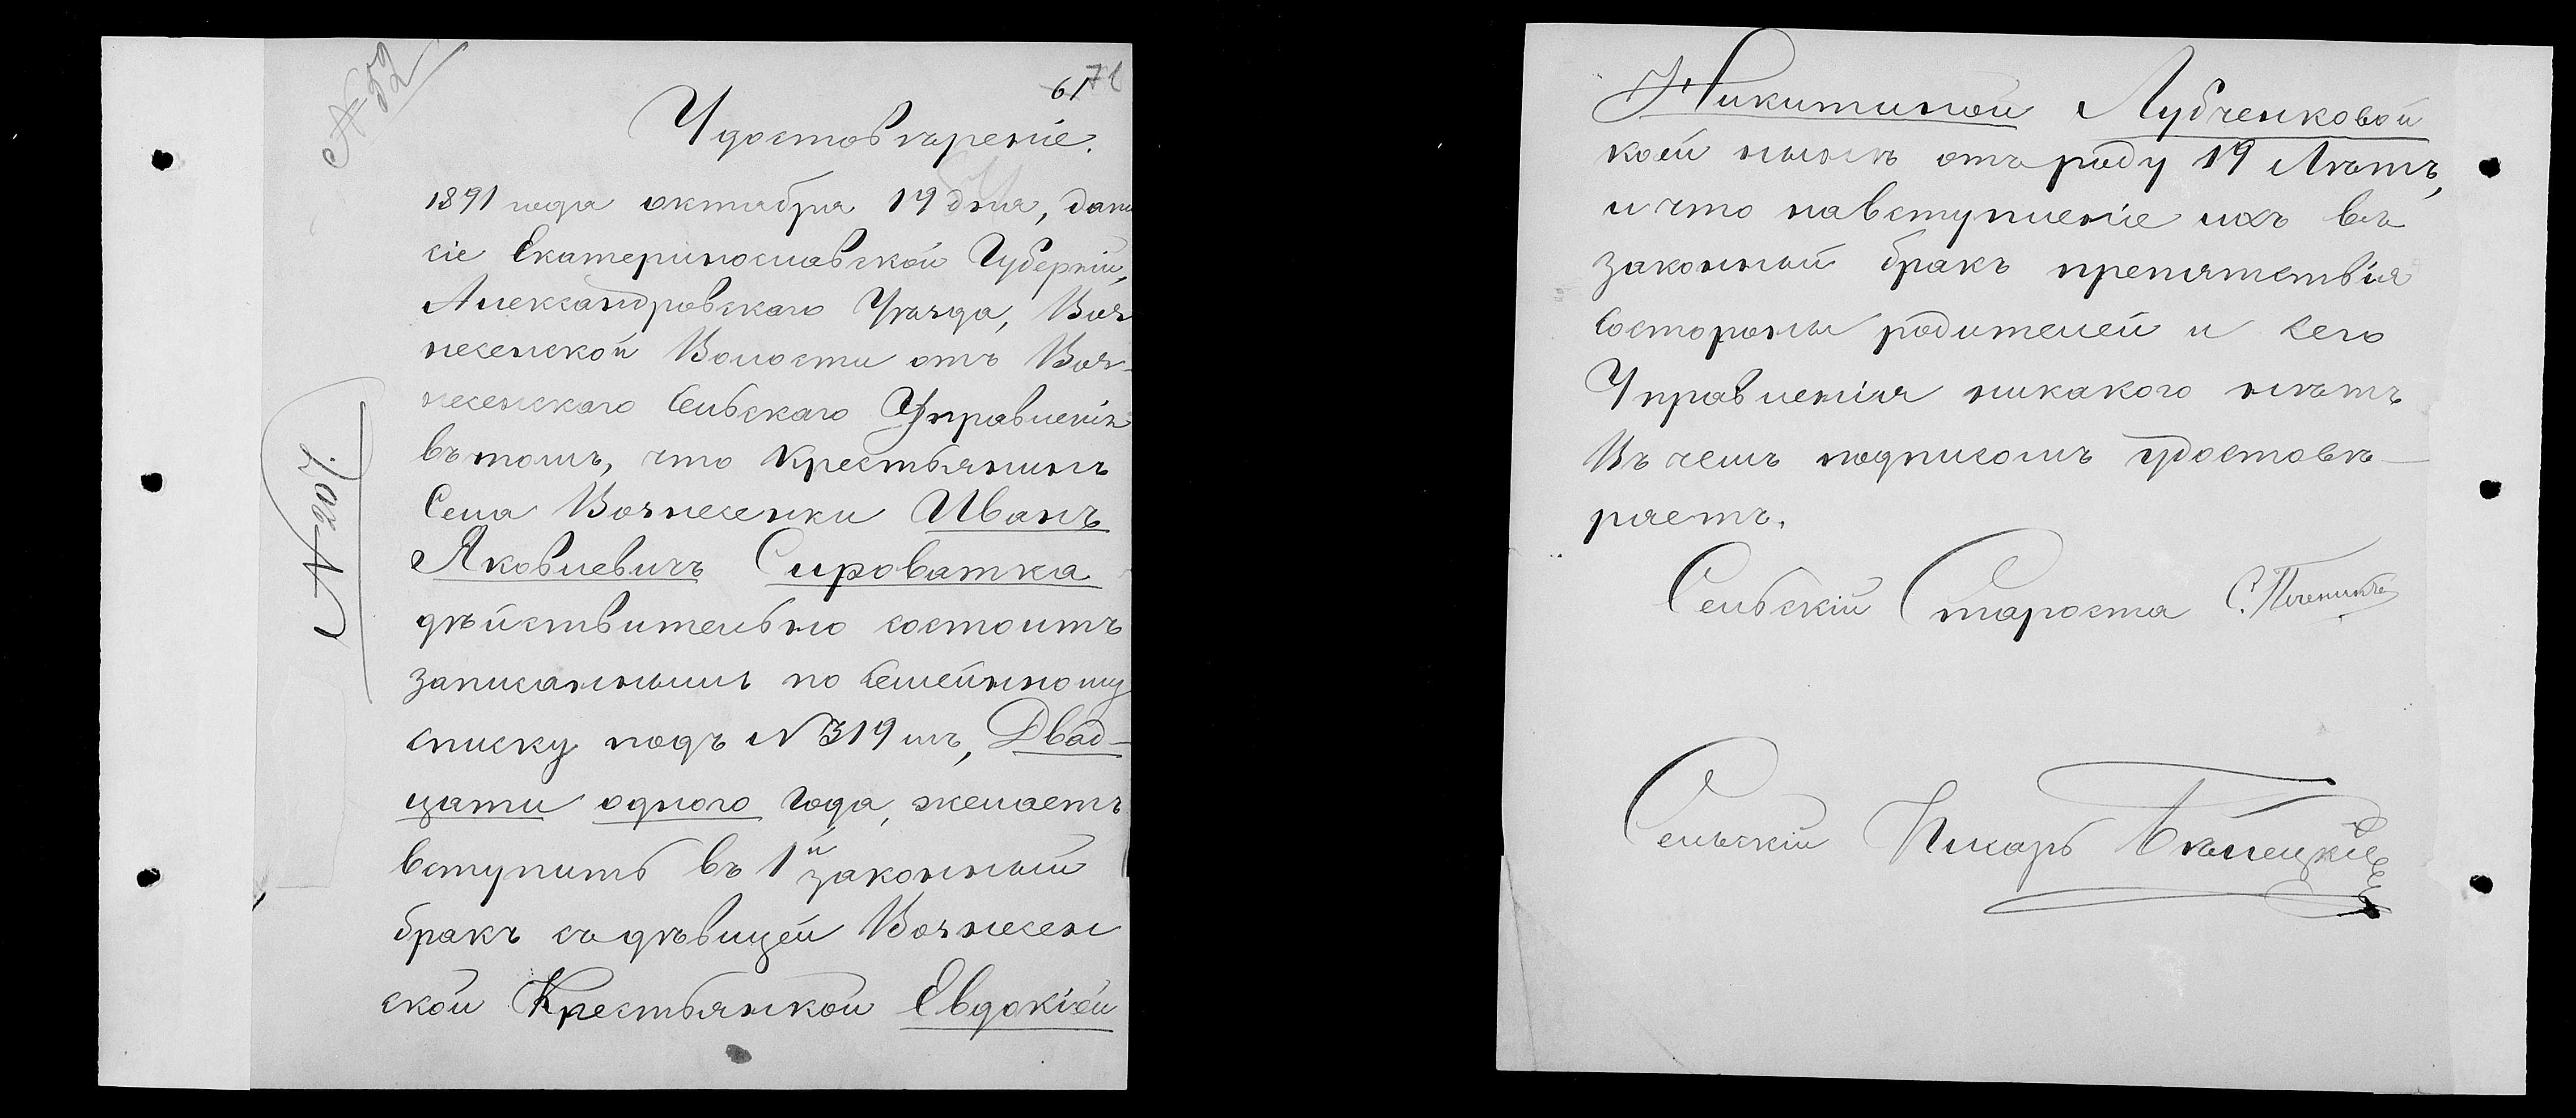 № 52
61 71
Удостовѣреніе.
1891 года октября 19 дня, дано
сіе Екатеринославской Губерніи,
Александровскаго Уѣзда, Воз
несенской Волости отъ Воз-
несенскаго Сельскаго Управленія
въ томъ, что Крестьянинъ
Села Вознесенки Иванъ
Яковлевичъ Сироватка
дѣйствительно состоитъ
записаннымъ по семейному
списку подъ № 319 мъ, Двад-
цати одного года, желаетъ
вступить въ 1й законный
бракъ съ дѣвицей Вознесен
ской Крестьянкой Евдокіей
№ 207.
Никитиной Лубченковой
коей нынѣ отъ роду 19 Лѣтъ,
и что на вступленіе ихъ въ
законный бракъ препятствія
состороны родителей и сего
Управленія никакого нѣтъ
Въ чемъ подписомъ удостовѣ-
ряетъ.
Сельскій Староста С.
Сельскій Писарь